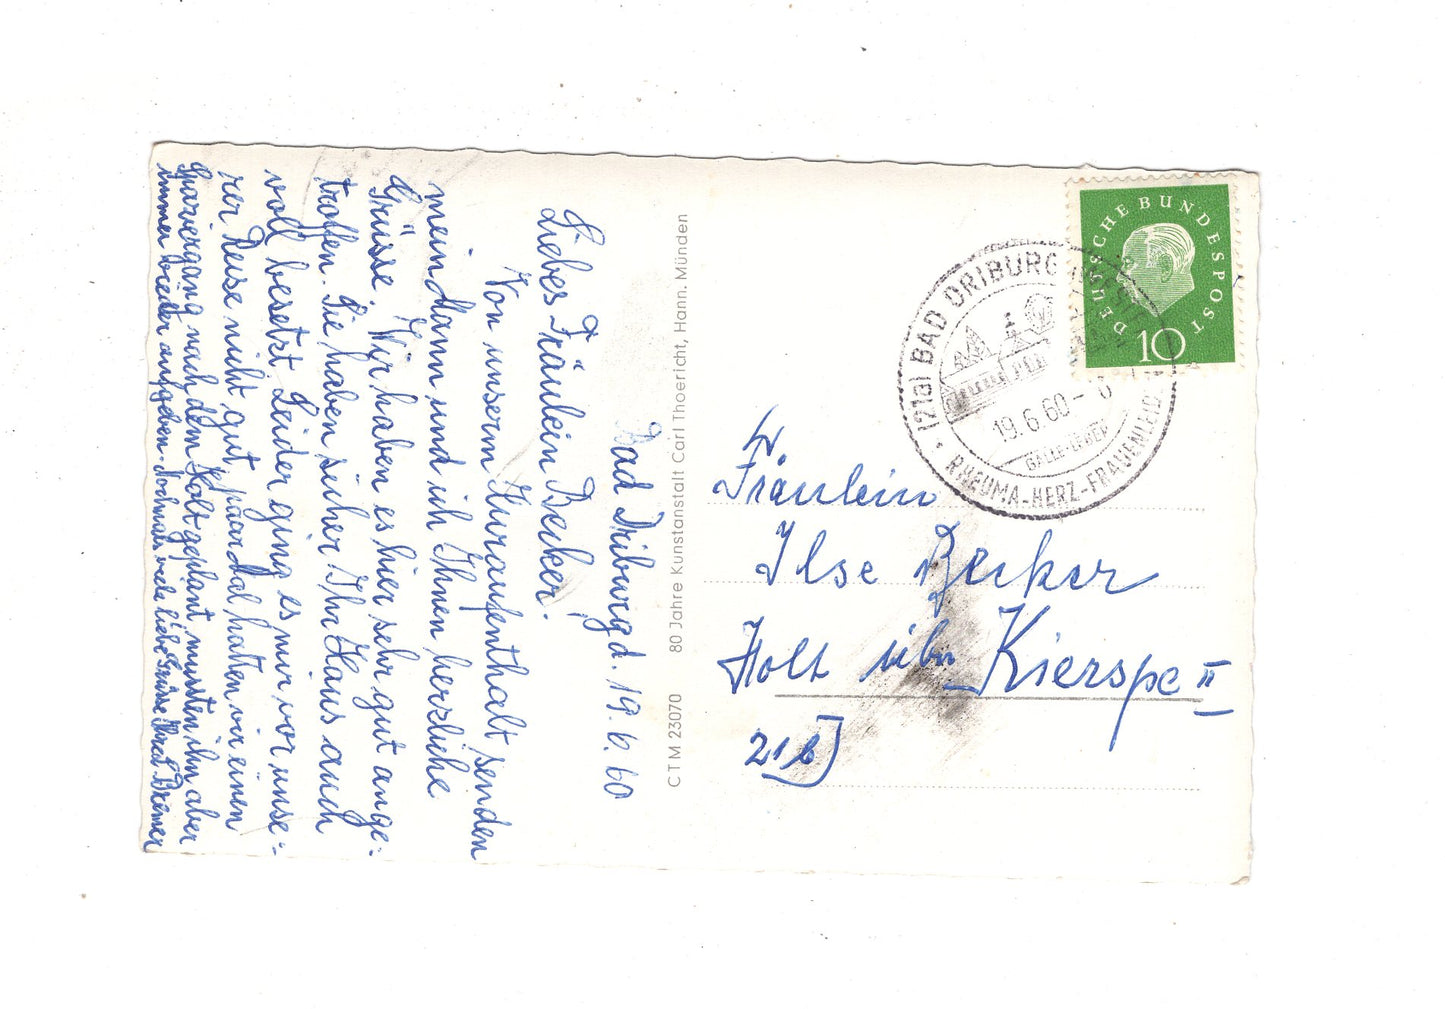 Bad Driburg d. 19.6.60
Liebes Fräulein Becker!
Von unserm Kuraufenthalt senden
mein Mann und ich Ihnen herzliche
Grüsse. Wir haben es hier sehr gut ange-
troffen. Sie haben sicher Ihr Haus auch
voll besetzt. Leider ging es mir vor unse-
rer Reise nicht gut,
nach dem geplant, mussten ihn aber
immer wieder aufgeben. Nochmals viele liebe Grüsse Ihre Bremer
CTM 23070 80 Jahre Kunstanstalt Carl Thoericht, Hann. Münden
DEUTSCHE BUNDESPOST
10
(21a) BAD DRIBURG
19.6.60-
GALLE-LEBER
RHEUMA-HERZ-FRAUENLEID
Fräulein
Ilse Becker
Holt über Kierspe II
21b